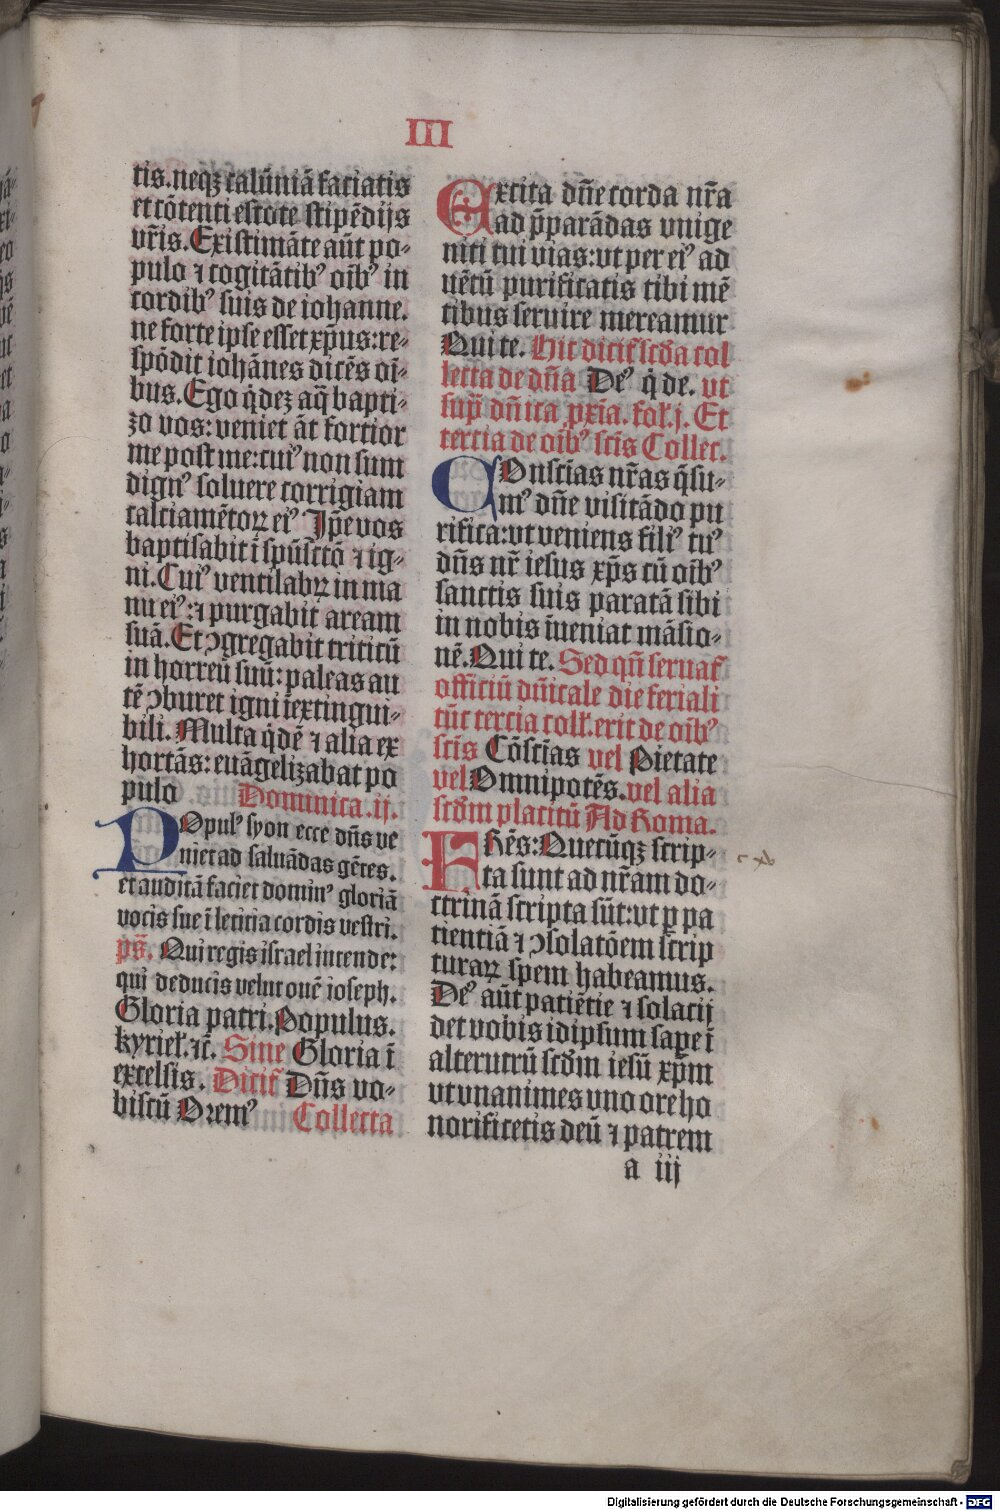 III
tis. neqꝫ calũniã faciatis
et cõtenti estote stipẽdijs
vr̃is. Existimãte aũt po-
pulo ⁊ cogitãtibꝰ oĩbꝰ in
cordibꝰ suis de iohanne.
ne forte ipse esset xp̃us: re-
spõdit iohãnes dicẽs oĩ-
bus. Ego q̇dez aq̃ bapti-
zo vos: veniet ãt fortior
me post me: cuiꝰ non sum
dignꝰ soluere corrigiam
calciamẽtoꝝ eiꝰ. Ip̃e vos
baptisabit ĩ spũsctõ ⁊ ig-
ni. Cuiꝰ ventilabꝝ in ma
nu eiꝰ: ⁊ purgabit aream
suã. Et ↄgregabit triticũ
in horreũ suũ: paleas au
tẽ ↄburet igni ĩextingui-
bili. Multa q̇dẽ ⁊ alia ex
hortãs: euãgelizabat po
pulo Dominica. ij.
POpulꝰ syon ecce dñs ve
niet ad saluãdas gẽtes.
et auditã faciet dominꝰ gloriã
vocis sue ĩ leticia cordis vestri.
ps̃. Qui regis israel intende:
qui deducis velut ouẽ ioseph.
Gloria patri. Populus.
kyriel̓. ⁊c̃. Sine Gloria ĩ
excelsis. Dicit̃ Dñs vo-
biscũ Oremꝰ Collecta
EXcita dñe corda nr̃a
ad p̃parãdas vnige
niti tui vias: vt per eiꝰ ad
uẽtũ purificatis tibi mẽ
tibus seruire mereamur
Qui te. Hic dicit̃ scd̃a col
lecta de dña Deꝰ q̇ de. vt
sup̃ dñica ꝓxĩa. fol̓. j. Et
tertia de oĩbꝰ sctĩs Collec.
COnsciẽas nr̃as q̃su-
mꝰ dñe visitãdo pu
rifica: vt veniens filiꝰ tuꝰ
dñs nr̃ iesus xp̃s cũ oĩbꝰ
sanctis suis paratã sibi
in nobis ĩueniat mãsio-
nẽ. Qui te. Sed qñ seruat̃
officiũ dñicale die feriali
tũc tercia coll̓. erit de oĩbꝰ
sctĩs Cõsciẽas vel Pietate
vel Omnipotẽs. vel alia
scd̃m placitũ Ad Roma.
FRẽs: Quecũqꝫ scrip-
ta sunt ad nr̃am do-
ctrinã scripta sũt: vt ꝑ pa
cientiã ⁊ ↄsolatõem scrip
turaꝝ spem habeamus.
Deꝰ aũt patiẽtie ⁊ solacij
det vobis idipsum saꝑe ĩ
alterutrũ scd̃m iesũ xp̃m
vt vnanimes vno ore ho
norificetis deũ ⁊ patrem
a iij
Digitalisierung gefördert durch die Deutsche Forschungsgemeinschaft - DFG